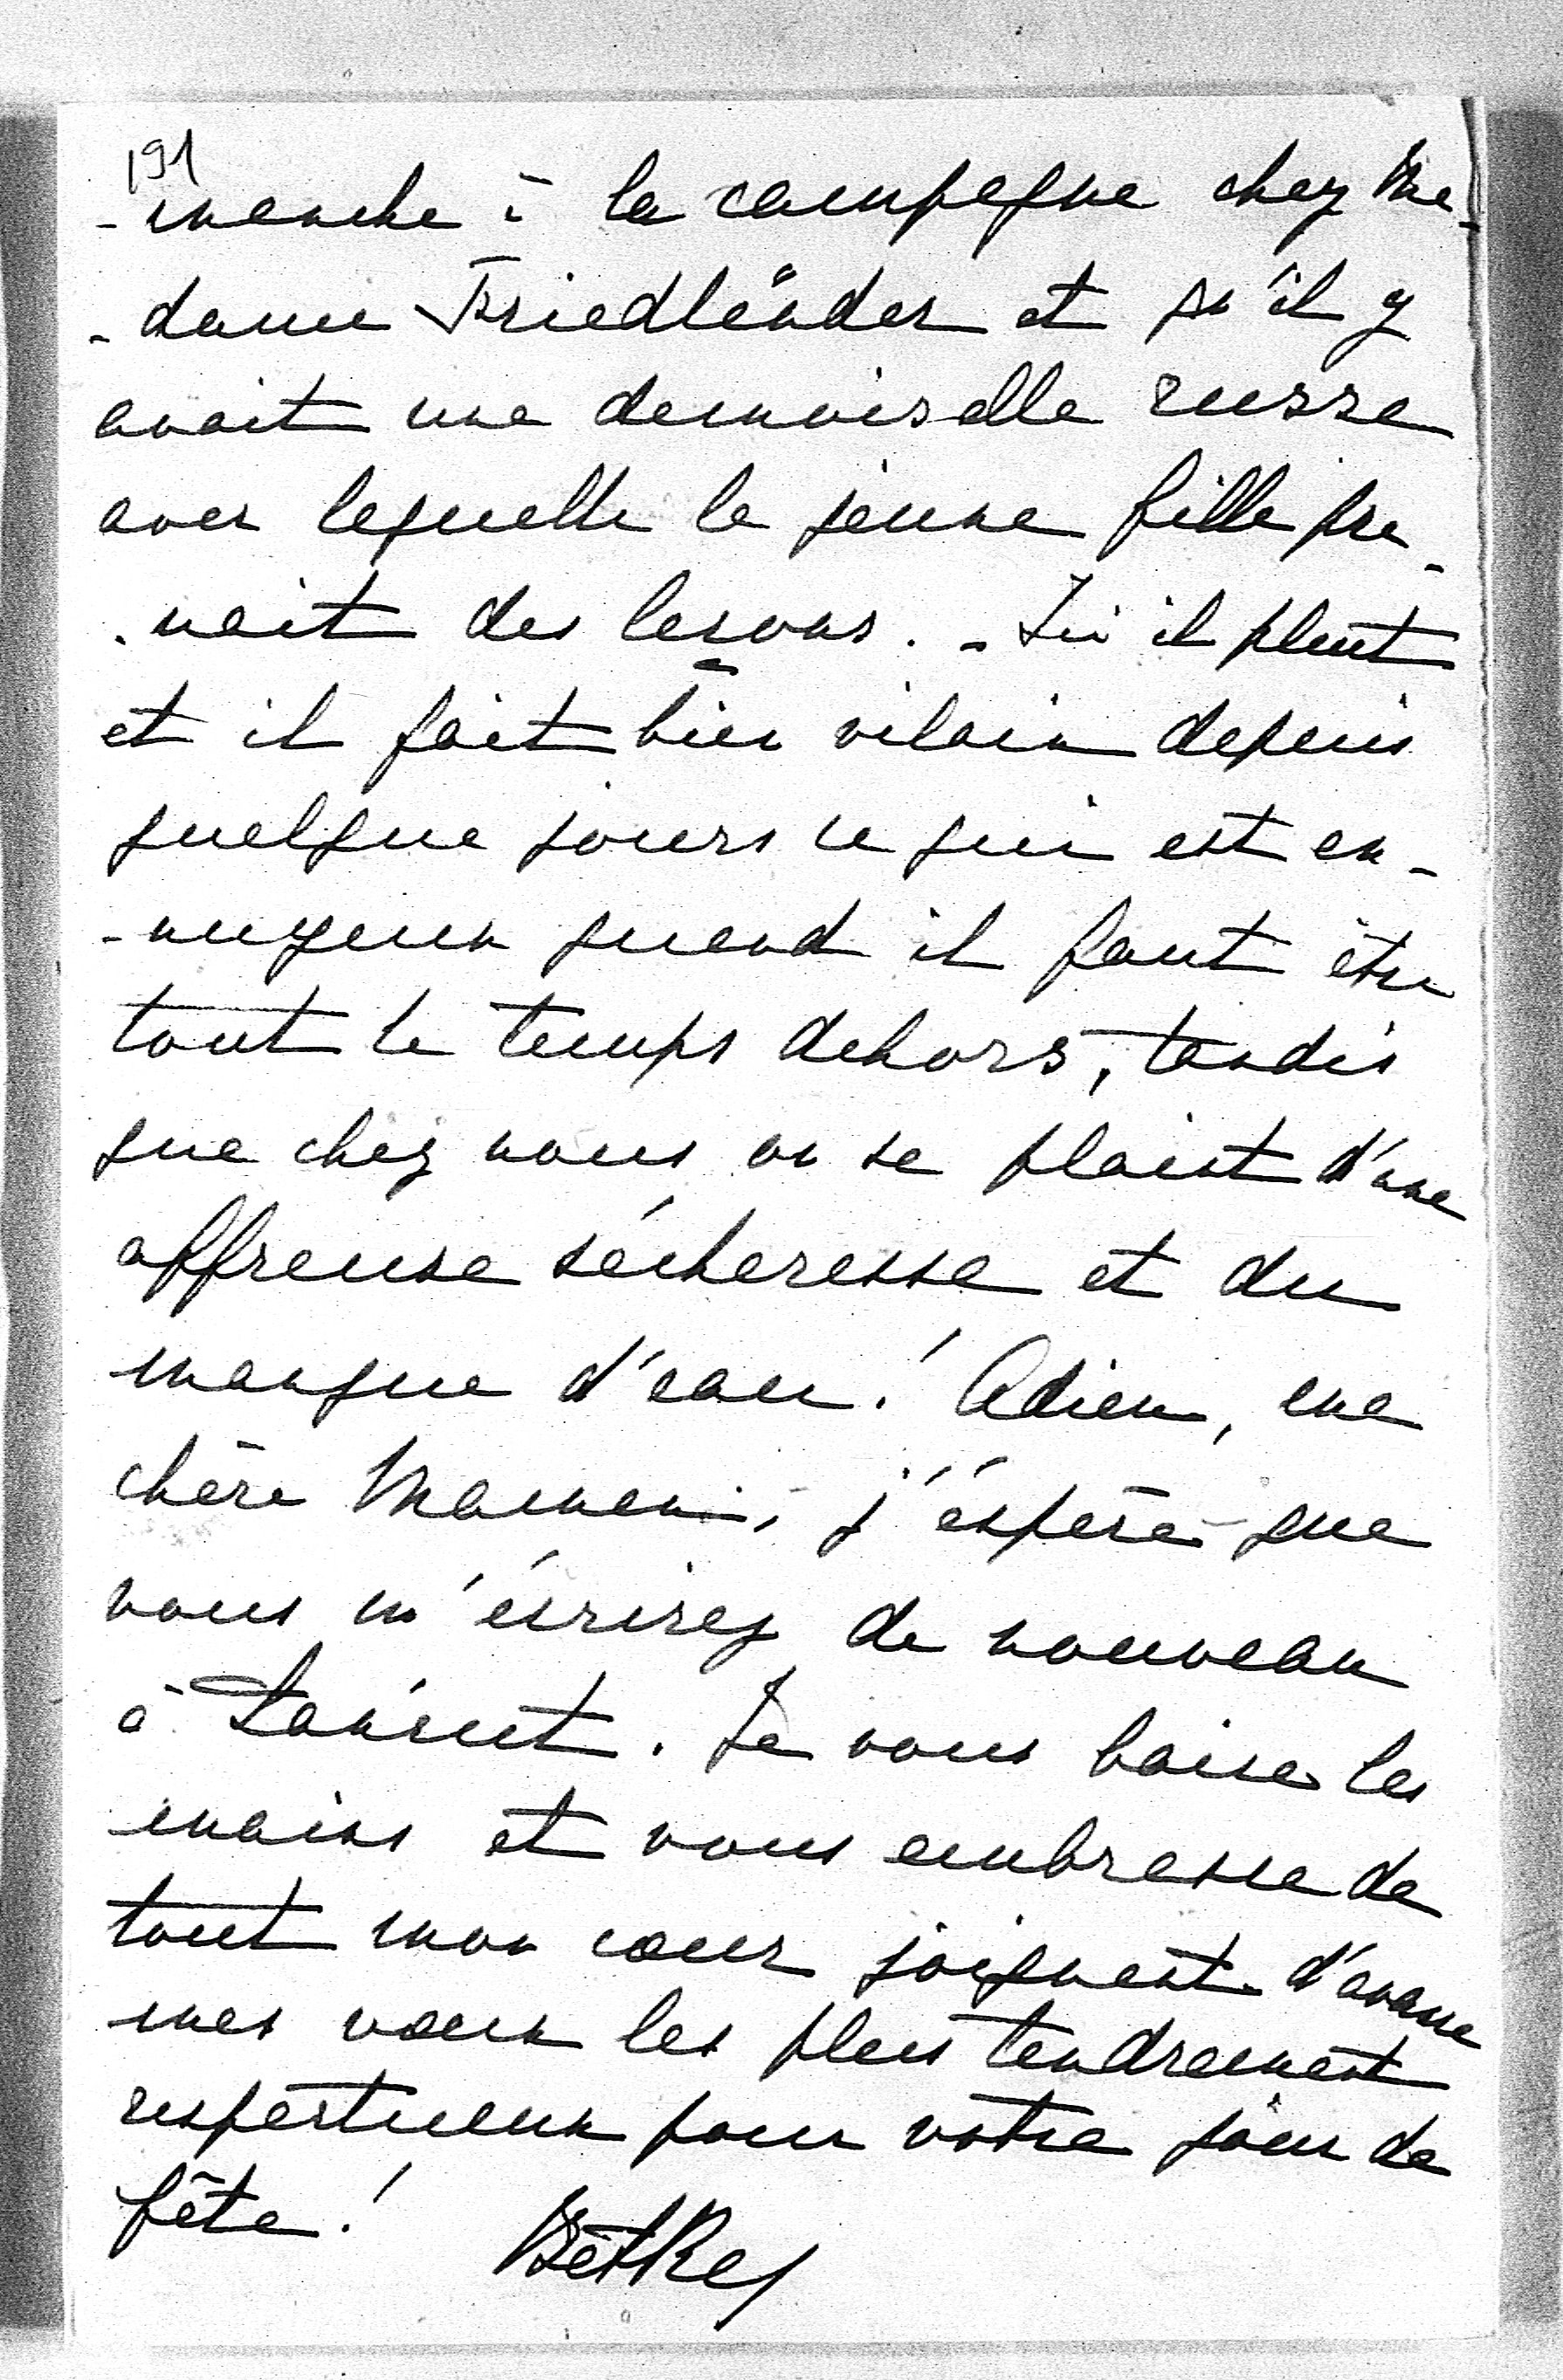 191
-manche à la campagne chez Ma-
-dame Friedländer et qu'il y
avait une demoiselle russe
avec laquelle la jeune fille pre-
-nait des leçons. - Ici il pleut
et il fait bien vilain depuis
quelque jours ce qui est en-
-nuyeux quand il faut être
tout le temps dehors, tandis
que chez nous on se plaint d'une
affreuse sécheresse et du
manque d'eau! Adieu, ma
chère Maman, j'éspère que
vous m'écrirez de nouveau
à. Je vous baise les
mains et vous embrasse de
tout mon cœur joignant d'avance
mes vœux les plus tendrement
respectueux pour votre jour de
fête!